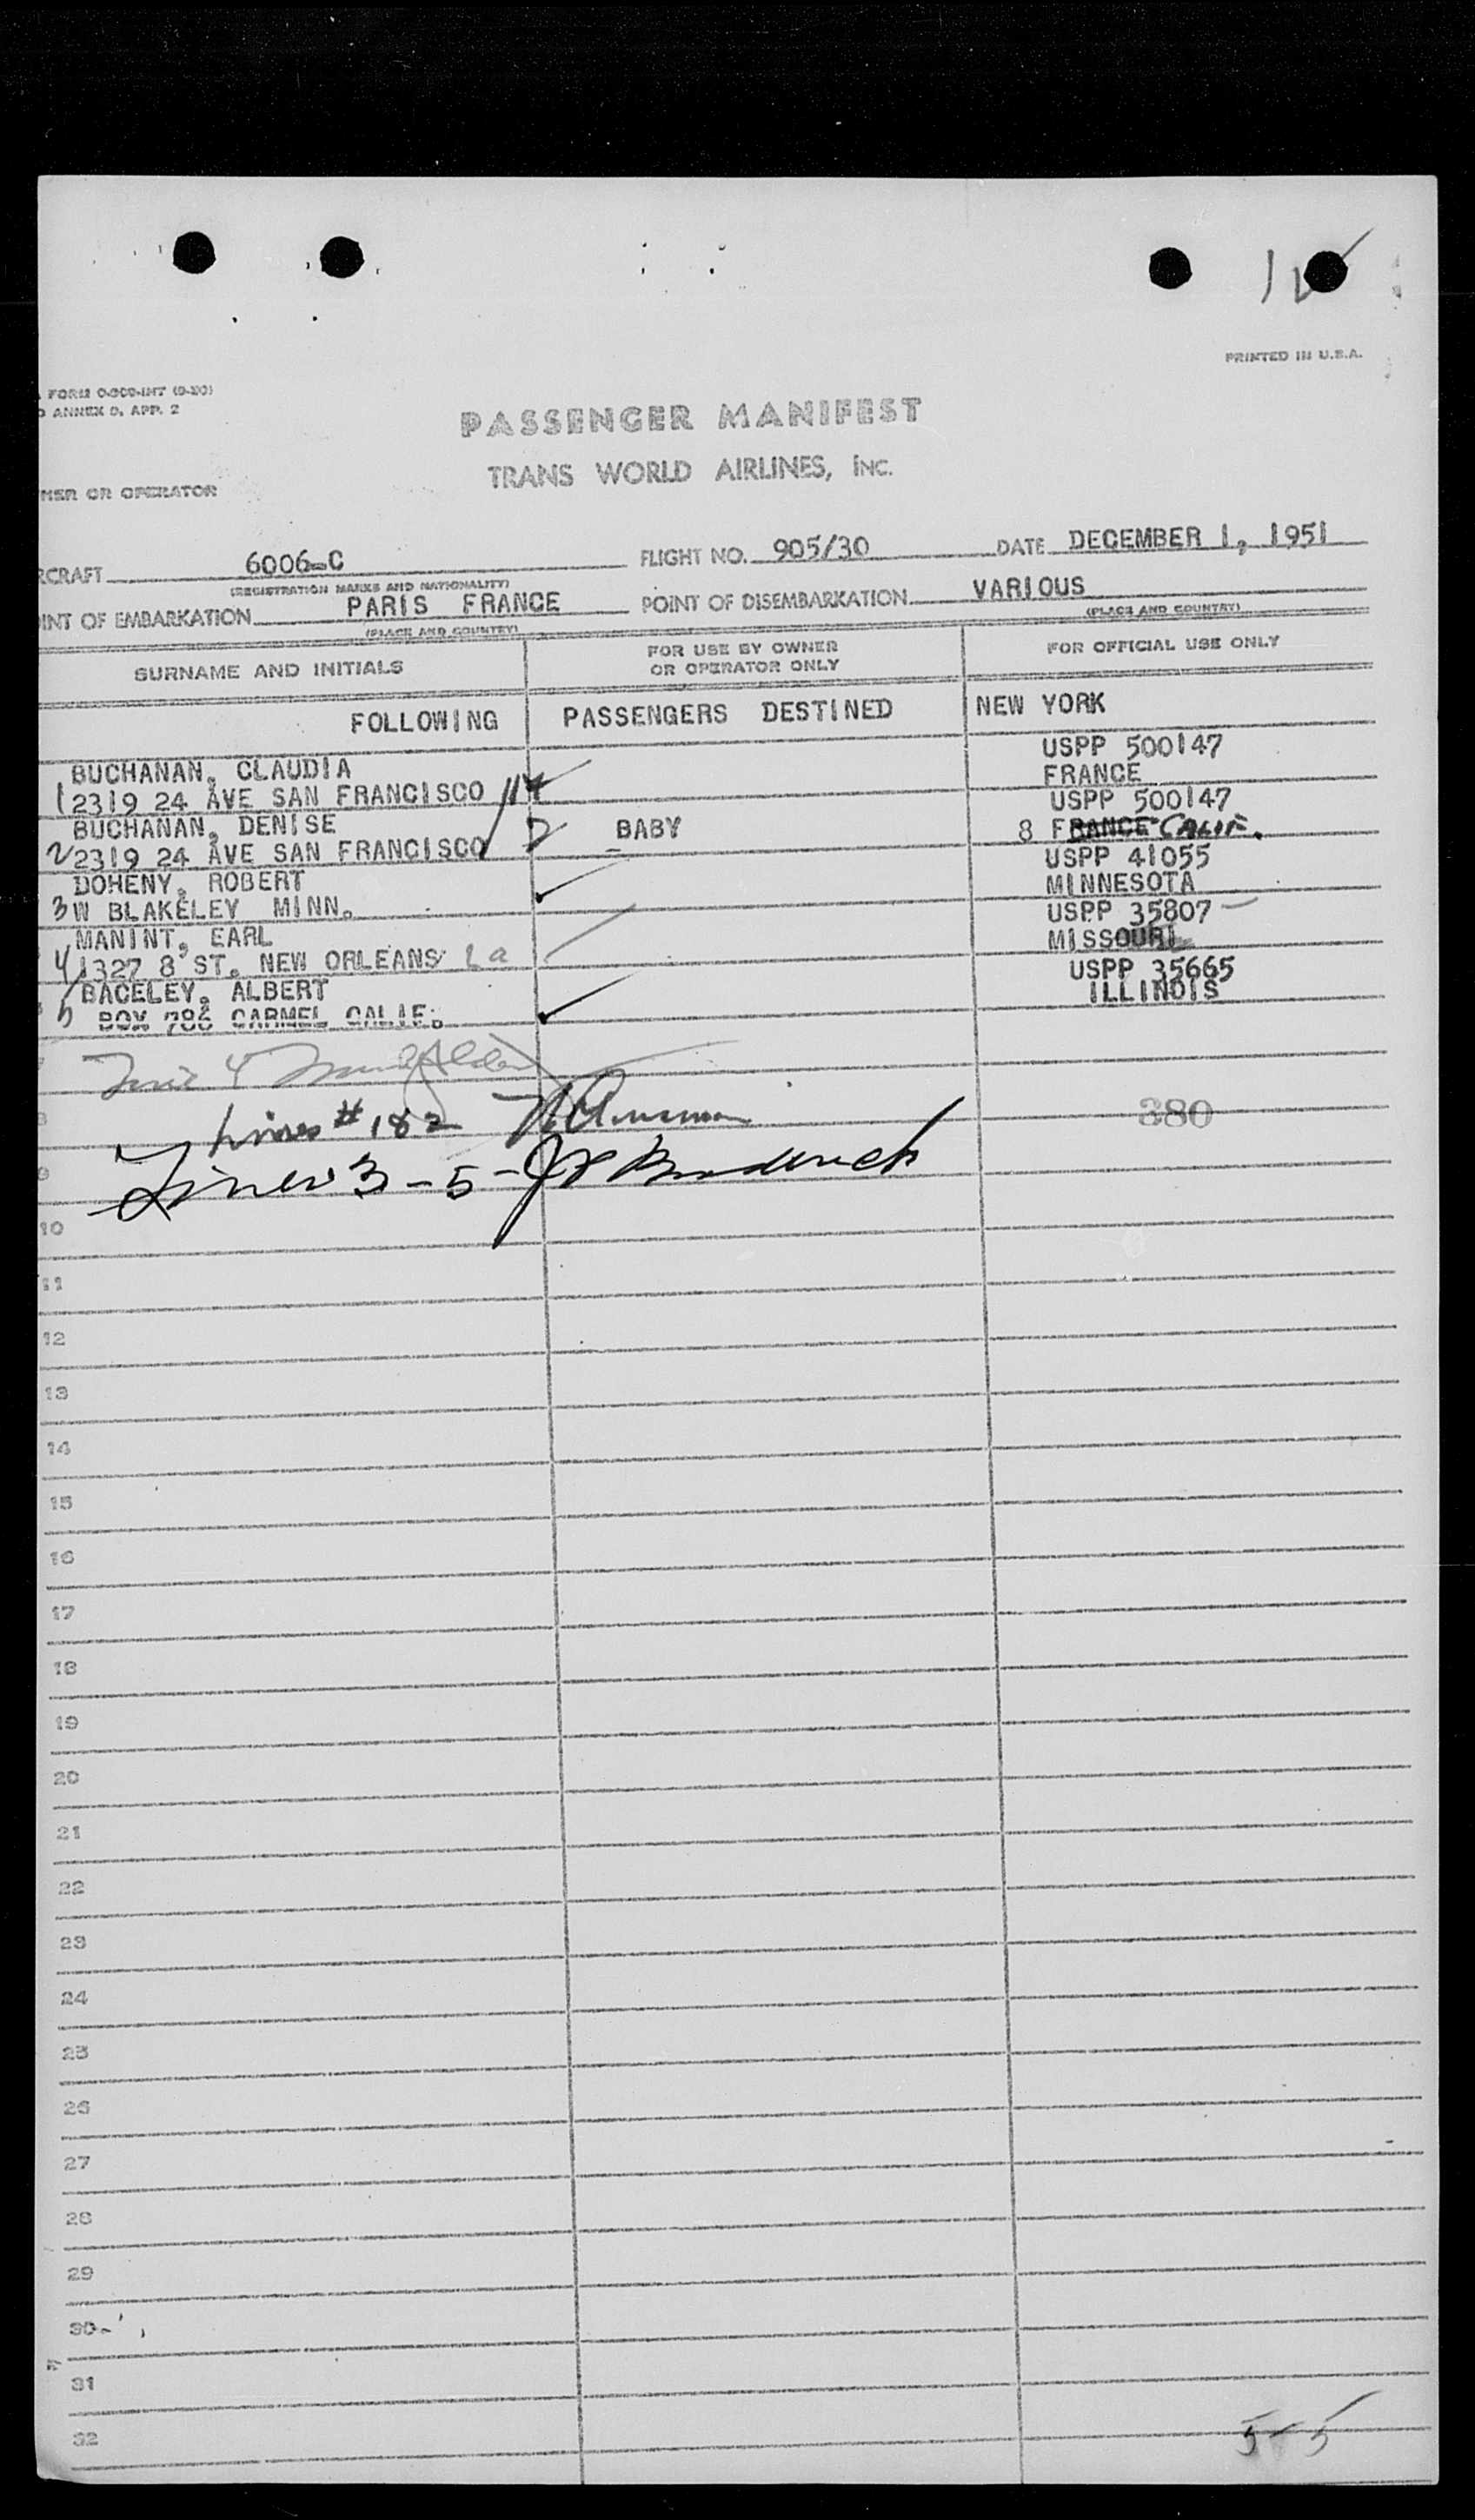 PRINTED IN U.S.A.
FORM O-800-INT
ANNEX 9, APP. 2
PASSENGER MANIFEST
TRANS WORLD AIRLINES, INC.
NER OR OPERATOR
RCRAFT 6006-C FLIGHT NO. 905/30 DATE DECEMBER 1, 1951
(REGISTRATION MARKS AND NATIONALITY)
INT OF EMBARKATION PARIS FRANCE POINT OF DISEMBARKATION VARIOUS
(PLACE AND COUNTRY) (PLACE AND COUNTRY)
SURNAME AND INITIALS FOR USE BY OWNER OR OPERATOR ONLY FOR OFFICIAL USE ONLY
FOLLOWING PASSENGERS DESTINED NEW YORK
BUCHANAN, CLAUDIA USPP 500147
1 2319 24 AVE SAN FRANCISCO FRANCE
BUCHANAN, DENISE BABY USPP 500147
2 2319 24 AVE SAN FRANCISCO 8 FRANCE CALIF.
DOHENY, ROBERT USPP 41055
3 W BLAKELEY MINN. MINNESOTA
MANINT, EARL USPP 35807
4 1327 8 ST. NEW ORLEANS La MISSOURI
BAGELEY, ALBERT USPP 35665
5 BOX 786 CARMEL CALIF. ILLINOIS
Line 4
Lines # 1 & 2
380
8
Lines 3-5-
9
10
11
12
13
14
15
16
17
18
19
20
21
22
23
24
25
26
27
28
29
30
31
32
5 5